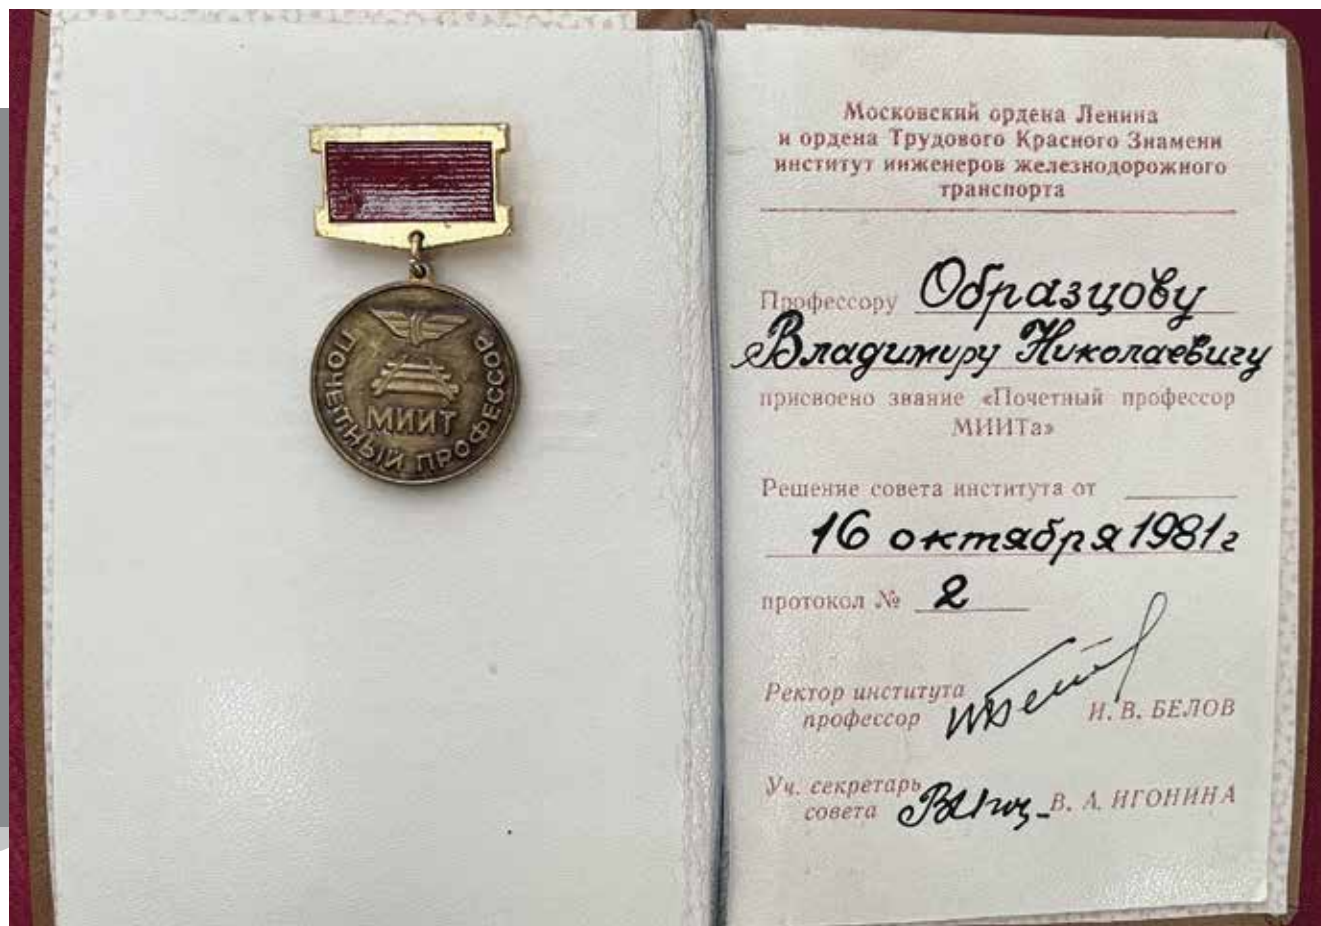 ПОЧЕТНЫЙ ПРОФЕССОР
МИИТ
Московский ордена Ленина
и ордена Трудового Красного Знамени
институт инженеров железнодорожного
транспорта
Профессору Образцову
Владимиру Николаевичу
присвоено звание «Почетный профессор
МИИТа»
Решение совета института от
16 октября 1981 г
протокол № 2
Ректор института
профессор И. В. БЕЛОВ
Уч. секретарь
совета В. А. ИГОНИНА